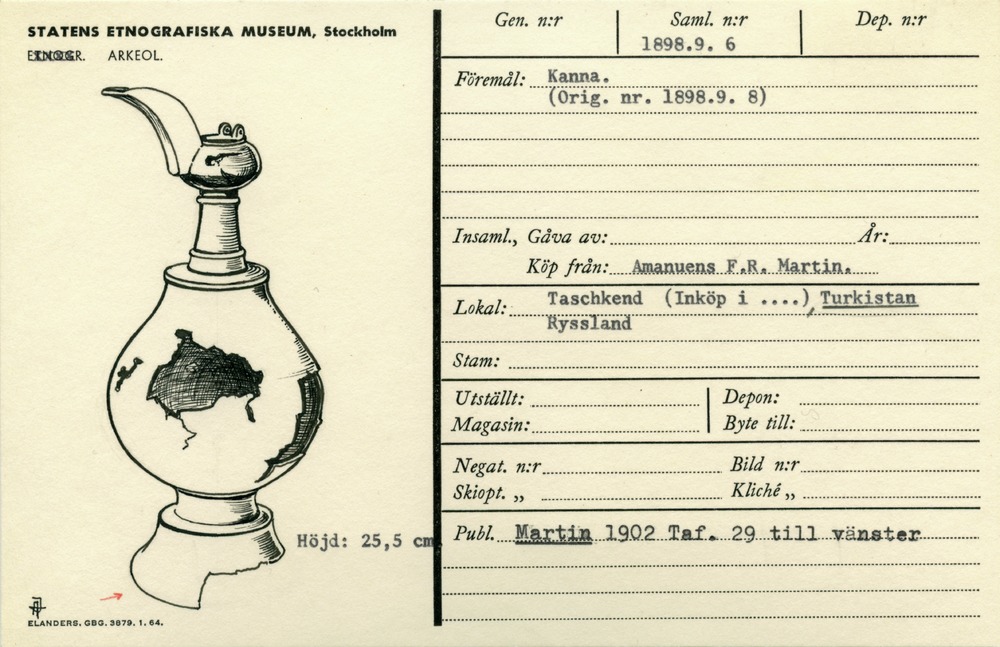 STATENS ETNOGRAFISKA MUSEUM, Stockholm
ETNOGR. ARKEOL.
Höjd: 25,5 cm
ELANDERS, GBG. 3879. 1. 64.
Gen. n:r Saml. n:r Dep. n:r
1898.9. 6
Föremål: Kanna.
(Orig. nr. 1898.9. 8)
Insaml., Gåva av: År:
Köp från: Amanuens F.R. Martin.
Lokal: Taschkend (Inköp i ....), Turkistan
Ryssland
Stam:
Utställt: Depon:
Magasin: Byte till:
Negat. n:r Bild n:r
Skiopt. „ Kliché „
Publ. Martin 1902 Taf. 29 till vänster